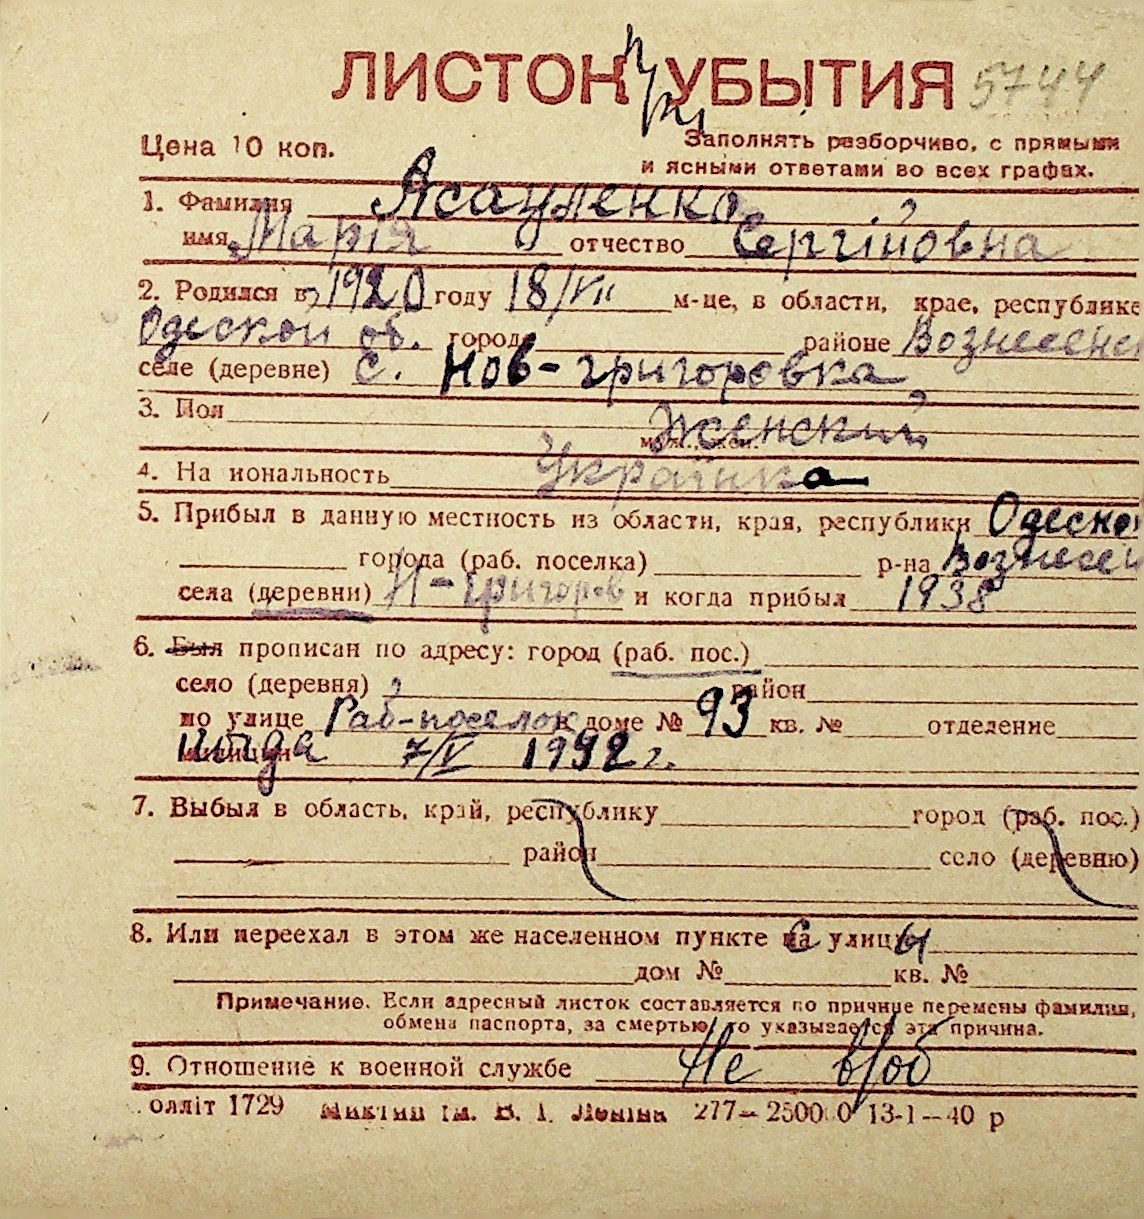 ЛИСТОК УБЫТИЯ 5744
Цена 10 коп.
Заполнять разборчиво, с прямыми
и ясными ответами во всех графах.
1. Фамилия Ясауленко
имя Марія отчество Сергіївна
2. Родился в 1920 году 18/VII м-це, в области, крае, республике
Одеской об. город районе Вознесенс
селе (деревне) с. Нов-григоровка
3. Пол Женский
4. На иональность Українка
5. Прибыл в данную местность из области, края, республики Одеской
города (раб. поселка) р-на Вознесен
села (деревни) Н-григоров и когда прибыл 1938
6. Был прописан по адресу: город (раб. пос.)
село (деревня) район
по улице Раб-поселок доме № 93 кв. № отделение
милиции 7/V 1942 г.
7. Выбыл в область, край, республику город (раб. пос.)
район село (деревню)
8. Или переехал в этом же населенном пункте на улицу
дом № кв. №
Примечание. Если адресный листок составляется по причине перемены фамилии,
обмена паспорта, за смертью, то указывается эта причина.
9. Отношение к военной службе Не в/об
олліт 1729 Миктип ім. В. І. Леніна 277—25000 13-1—40 р